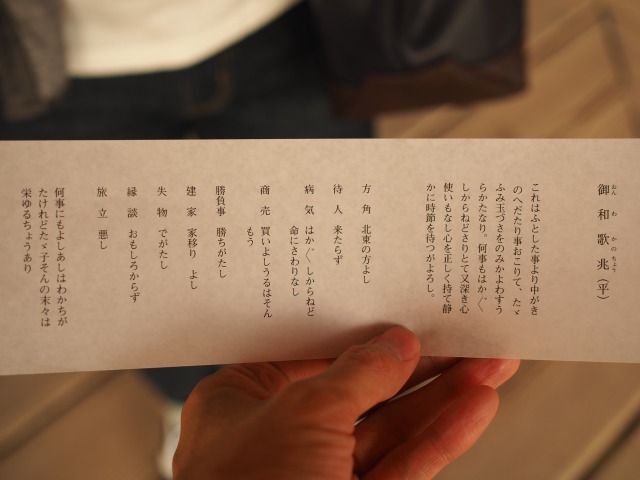 御和歌兆（平）
おんわかのちょう
これはふとした事より中がき
のへだたり事おこりて、たゞ
ふみ玉づさをのみかよわすう
らかたなり。何事もはか〲
しからねどさりとて又深き心
使いもなし心を正しく持て静
かに時節を待つがよろし。
方角 北東の方よし
待人 来たらず
病気 はか〲しからねど
命にさわりなし
商売 買いよしうるはそん
もう
勝負事 勝ちがたし
建家 家移り よし
失物 でがたし
縁談 おもしろからず
旅立 悪し
何事にもよしあしはわかちが
たけれどたゞ子そんの末々は
栄ゆるちょうあり